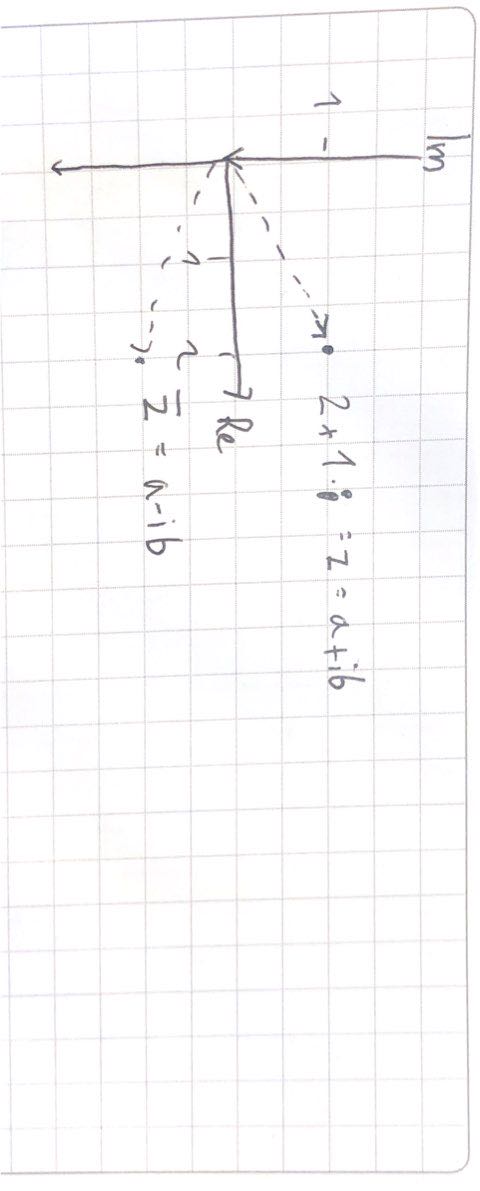 Im
1
2 + 1 · i = z = a + ib
Re
1 2
z̅ = a - ib